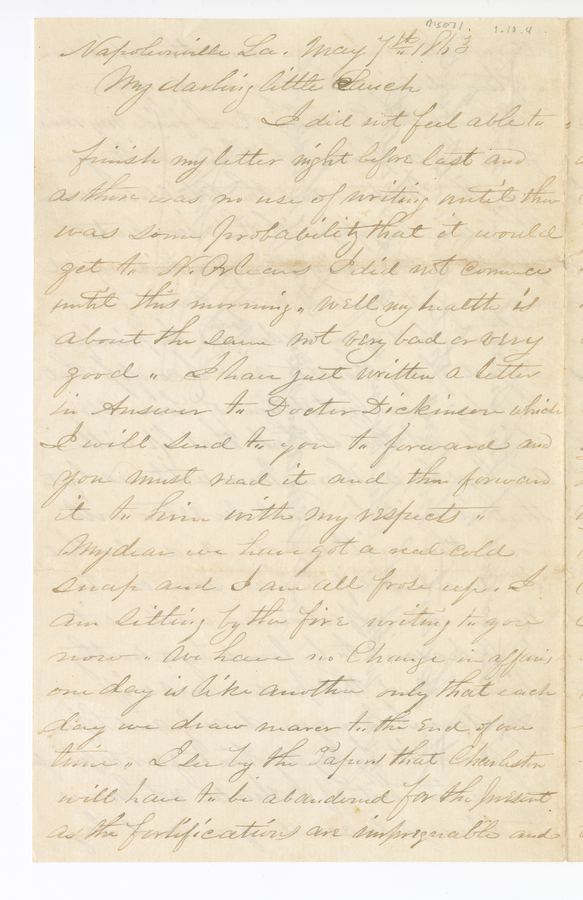 Napoleonville La. May 7th 1863
My darling little
I did not feel able to
finish my letter night before last and
as there was no use of writing until there
was some probability that it would
get to N. Orleans I did not comence
until this morning. Well my health is
about the same not very bad or very
good " I have just written a letter
in Answer to Doctor Dickinson which
I will send to you to forward and
you must read it and then forward
it to him with my respects "
My dear we have got a real cold
snap and I am all froze up. I
am sitting by the fire writing to you
now " We have no Change in affairs
one day is like another only that each
day we draw nearer to the End of our
time " I see by the Papers that Charleston
will have to be abandoned for the present
as the fortifications are impregnable and